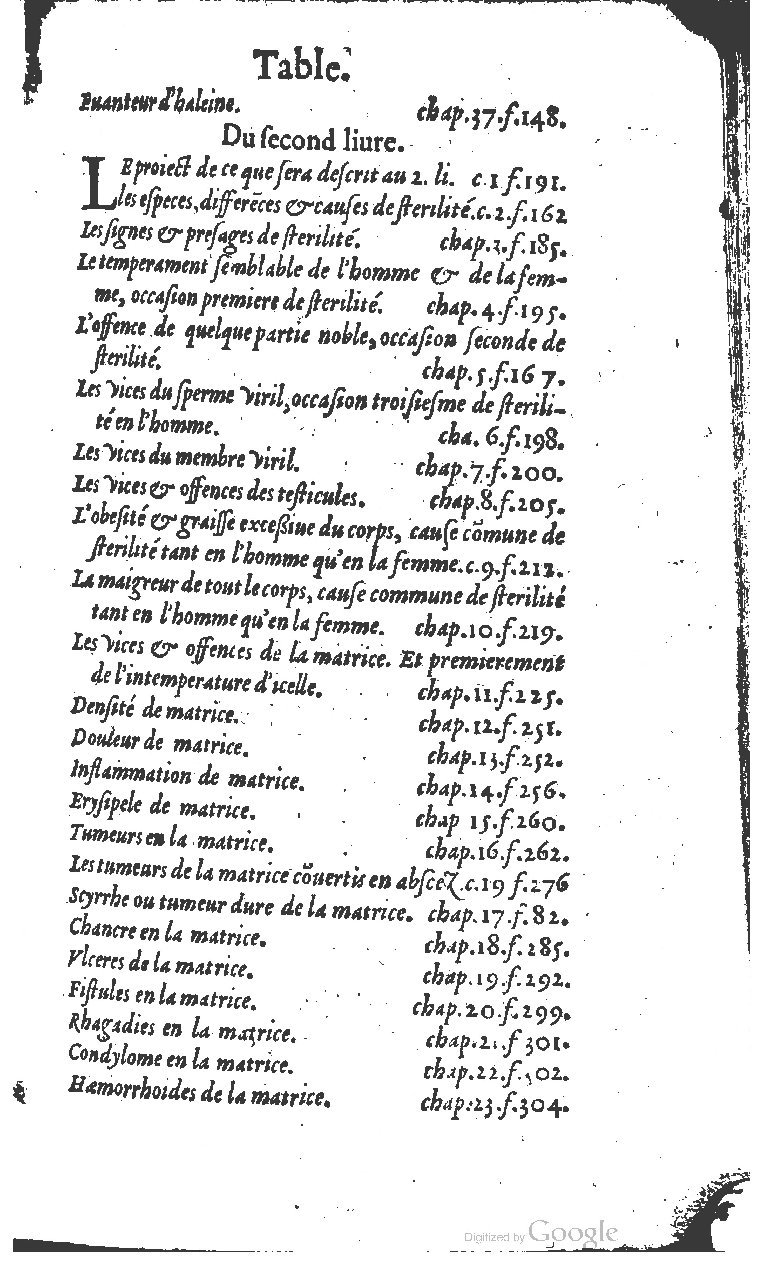 Table.
Puanteur d'haleine. chap.37.f.148.
Du ſecond liure.
LE proiect de ce que ſera deſcrit au 2. li. c.1 f.191.
les eſpeces, differẽces & cauſes de ſterilité.c.2.f.162
Les ſignes & preſages de ſterilité. chap.3.f.185.
Le temperament ſemblable de l'homme & de la fem-
me, occaſion premiere de ſterilité. chap.4.f.195.
L'offence de quelque partie noble, occaſion ſeconde de
ſterilité. chap.5.f.167.
Les vices du ſperme viril, occaſion troiſieſme de ſterili-
té en l'homme. cha. 6.f.198.
Les vices du membre viril. chap.7.f.200.
Les vices & offences des teſticules. chap.8.f.205.
L'obeſité & graiſſe exceßiue du corps, cauſe cõmune de
ſterilité tant en l'homme qu'en la femme.c.9.f.212.
La maigreur de tout le corps, cauſe commune de ſterilité
tant en l'homme qu'en la femme. chap.10.f.219.
Les vices & offences de la matrice. Et premierement
de l'intemperature d'icelle. chap.11.f.225.
Denſité de matrice. chap.12.f.251.
Douleur de matrice. chap.13.f.252.
Inflammation de matrice. chap.14.f 256.
Eryſipele de matrice. chap 15.f.260.
Tumeurs en la matrice. chap.16.f.262.
Les tumeurs de la matrice cõuertis en abſcez.c.19 f.276
Scyrrhe ou tumeur dure de la matrice. chap.17.f.82.
Chancre en la matrice. chap.18.f.285.
Vlceres de la matrice. chap.19.f.292.
Fiſtules en la matrice. chap.20.f.299.
Rhagadies en la matrice. chap.21.f 301.
Condylome en la matrice. chap.22.f.302.
Hæmorrhoides de la matrice. chap.23.f.304.
Digitized by Google